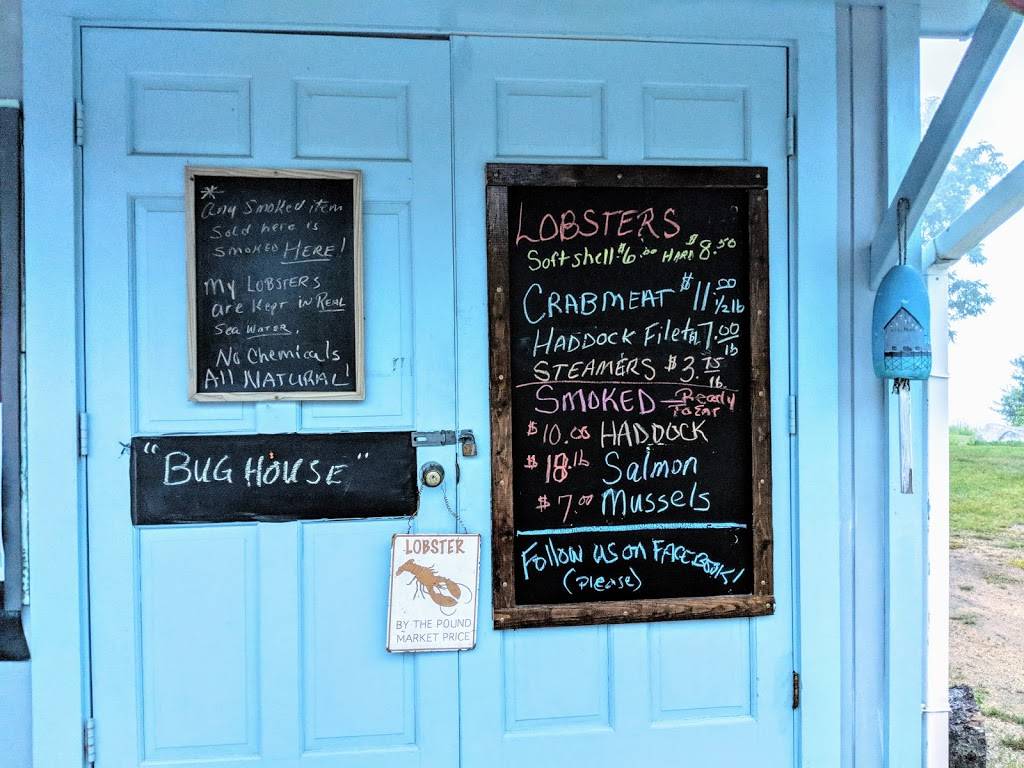 *
Any Smoked item
Sold here is
Smoked HERE!
My LOBSTERS
are Kept in Real
Sea Water.
No Chemicals
All NATURAL!
"BUG HOUSE"
LOBSTER
BY THE POUND
MARKET PRICE
LOBSTERS
Soft shell $6.00 HARD $8.50
CRABMEAT $11.00 1/2 lb
HADDOCK Filet $7.00 lb
STEAMERS $3.75 lb.
SMOKED - Ready To Eat
$10.00 HADDOCK
$18. lb Salmon
$7.00 Mussels
Follow us on FACEBOOK!
(please)